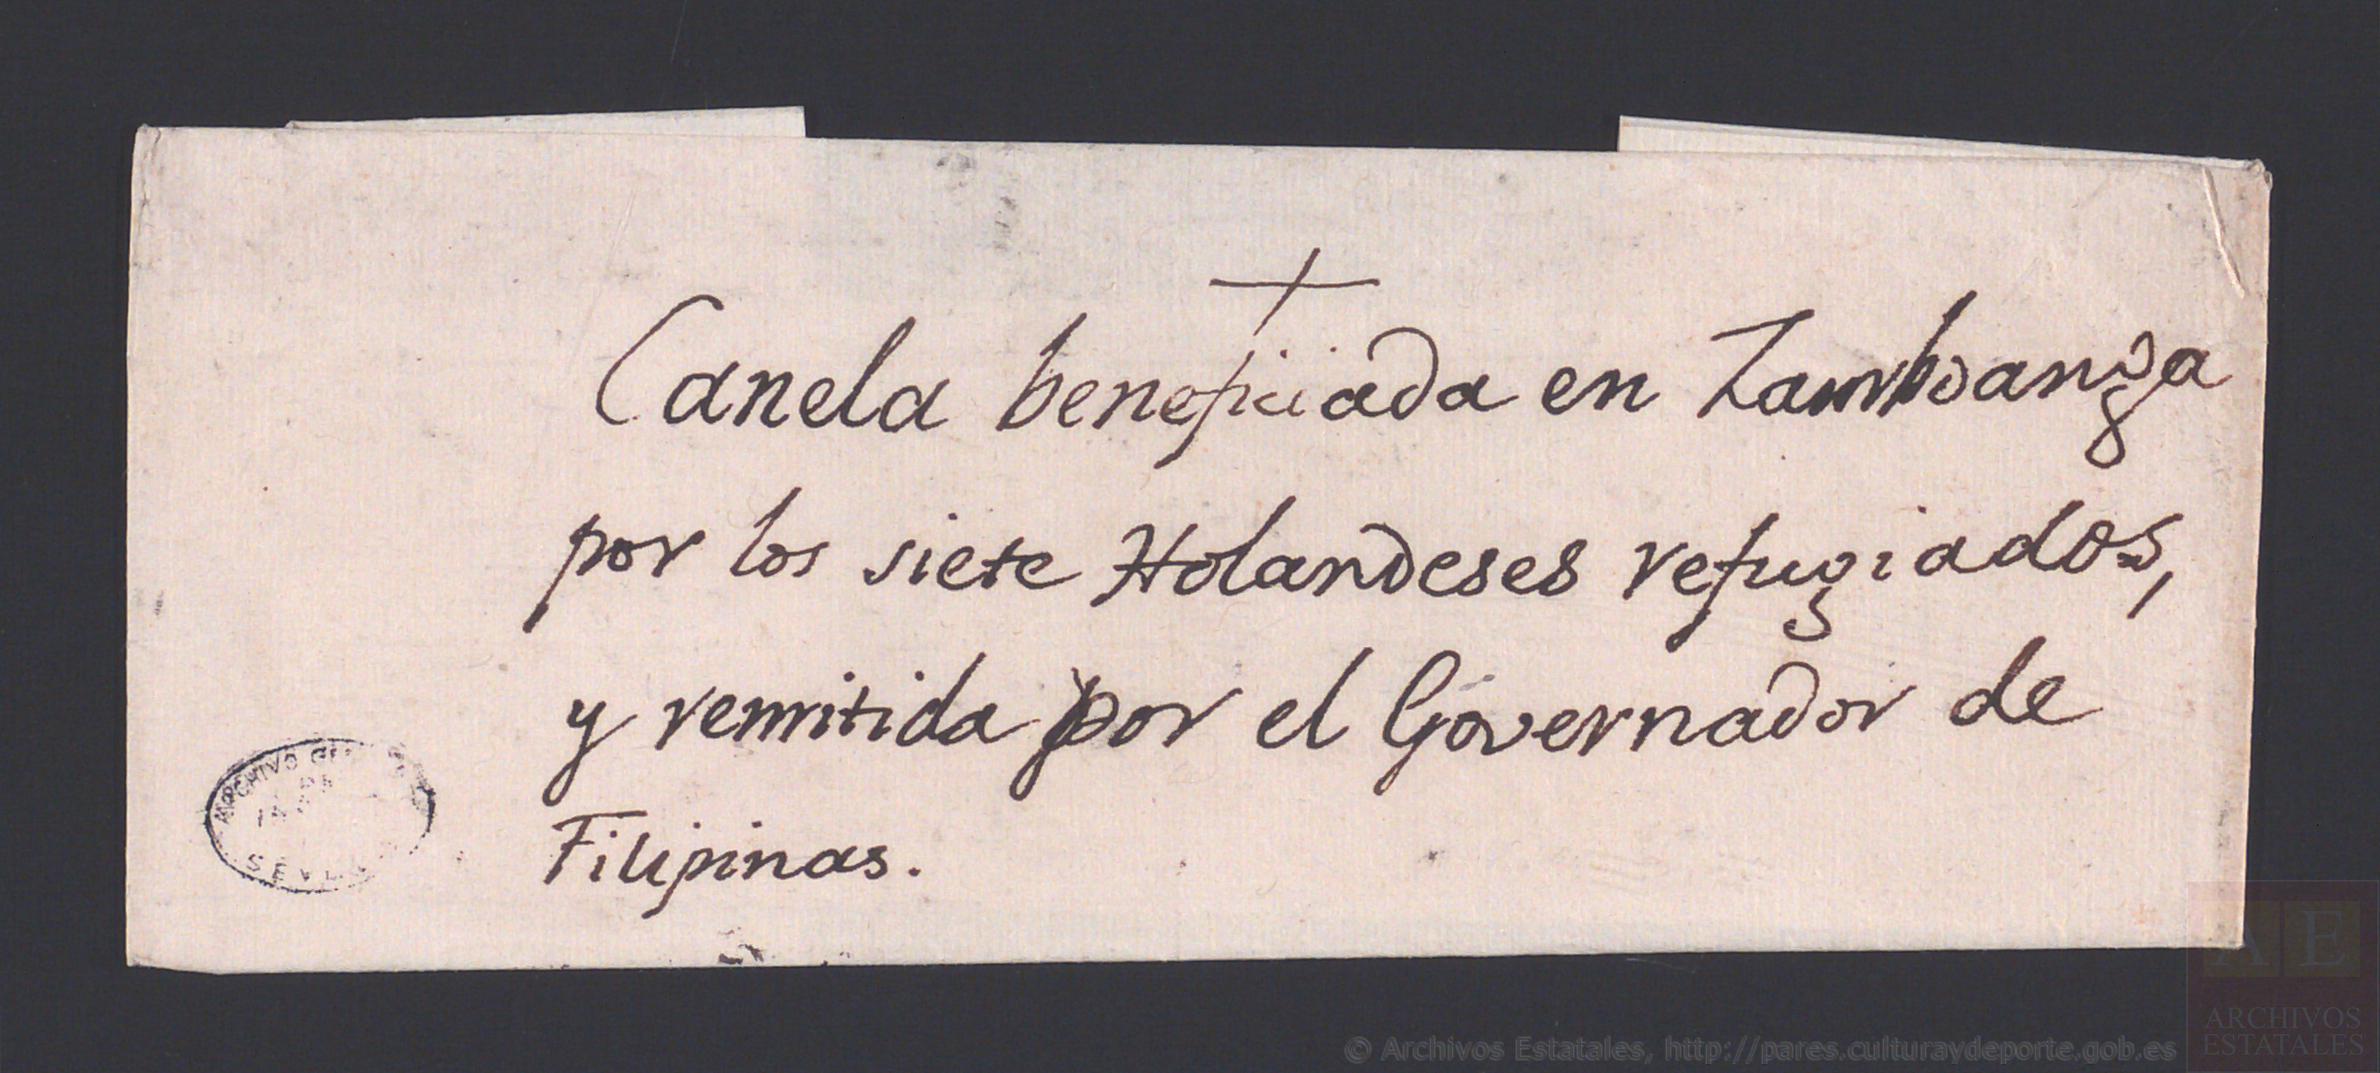 Canela beneficiada en Zamboanga
por los siete Holandeses refugiados,
y remitida por el Governador de
Filipinas.
ARCHIVO
SEVILLA
AE
ARCHIVOS
ESTATALES
© Archivos Estatales, http://pares.culturaydeporte.gob.es